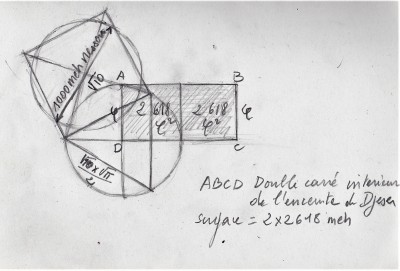 1000 meh nesou
√10
A
B
φ
2 618
φ²
2.618
φ²
φ
D
C
√10 x √π
2
ABCD Double carré interieur
de l'enceinte de Djeser
surface = 2x2618 meh